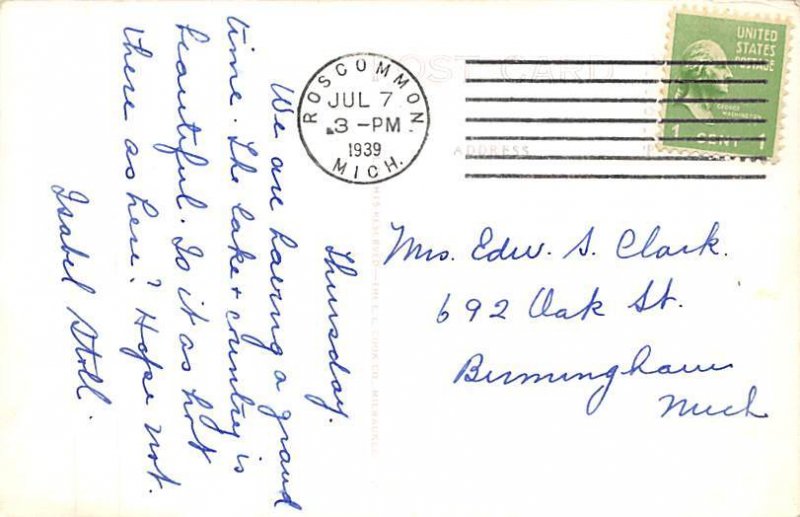 POST CARD
ROSCOMMON
JUL 7
3 - PM
1939
MICH.
UNITED
STATES
POSTAGE
GEORGE
WASHINGTON
1 CENT 1
ADDRESS
Thursday.
We are having a grand
time. The lake + country is
beautiful. Is it as hot
there as here? Hope not.
Isabel Stoll.
Mrs. Edw. S. Clark.
692 Oak St.
Birmingham
Mich